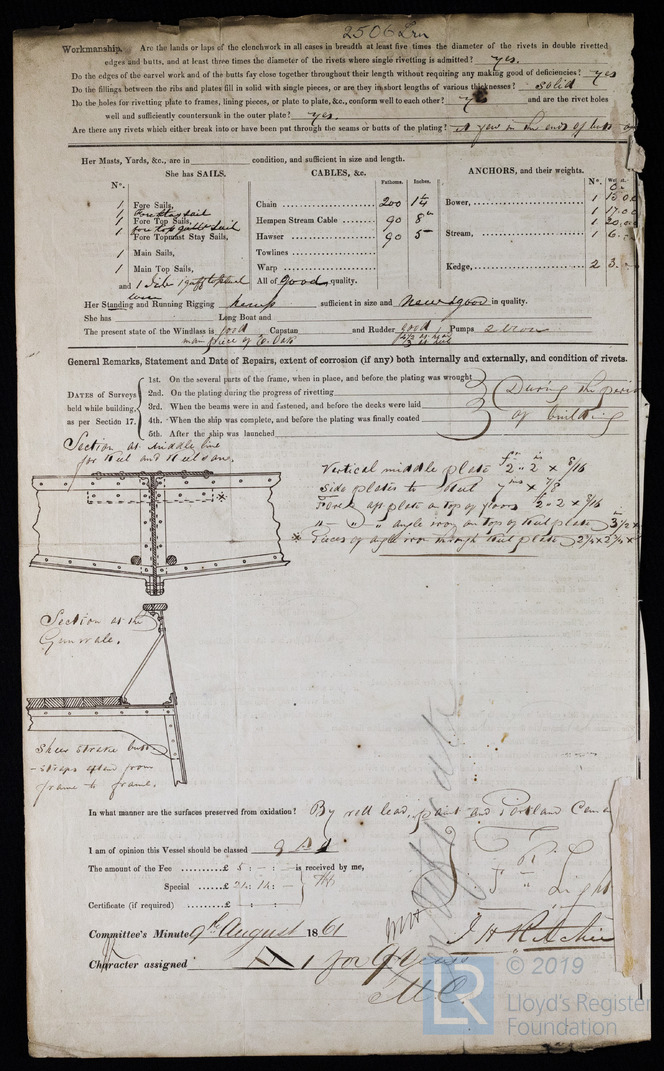 2506 Irn
Workmanship. Are the lands or laps of the clenchwork in all cases in breadth at least five times the diameter of the rivets in double rivetted
edges and butts, and at least three times the diameter of the rivets where single rivetting is admitted? yes.
Do the edges of the carvel work and of the butts fay close together throughout their length without requiring any making good of deficiencies? yes
Do the fillings between the ribs and plates fill in solid with single pieces, or are they in short lengths of various thicknesses? solid
Do the holes for rivetting plate to frames, lining pieces, or plate to plate, &c., conform well to each other? yes and are the rivet holes
well and sufficiently countersunk in the outer plate? yes.
Are there any rivets which either break into or have been put through the seams or butts of the plating? A few in the ends of butts
Her Masts, Yards, &c., are in condition, and sufficient in size and length.
She has SAILS. CABLES, &c. ANCHORS, and their weights.
N°. Fathoms. Inches. N°.
1 Fore Sails, Chain 200 1 1/4 Bower, 1 15.0.0
1 Fore Stay sail 1 17.0.0
1 Fore Top Sails, Hempen Stream Cable 90 8" 1 20.0.0
1 Fore top gallt sail
Fore Topmast Stay Sails, Hawser 90 5 Stream, 1 6.
1 Main Sails, Towlines
1 Main Top Sails, Warp Kedge, 2 3.
and 1 Jib 1 gaff topsail All of good quality.
Her Standing and Running Rigging hemp sufficient in size and New & good in quality.
She has Long Boat and
The present state of the Windlass is good Capstan and Rudder good Pumps 2 Iron
main piece of E. Oak
General Remarks, Statement and Date of Repairs, extent of corrosion (if any) both internally and externally, and condition of rivets.
DATES of Surveys held while building, as per Section 17.
1st. On the several parts of the frame, when in place, and before the plating was wrought
2nd. On the plating during the progress of rivetting
3rd. When the beams were in and fastened, and before the decks were laid
4th. When the ship was complete, and before the plating was finally coated
5th. After the ship was launched
During the
of building
Section at Middle line
for Keel and Keelsons.
Vertical middle plate 2" 2 x 8/16
Side plates to Keel 7 ins x 7/8
Fore & aft plate on top of floors 2" 2 x 8/16
" " " angle iron on top of Keel plate 3 1/2 x
※ Pieces of angle iron through Keel plate 2 1/2 x 2 1/2 x
※
Section at the
Gunwale.
Sheer Strake butt
straps extend from
frame to frame.
In what manner are the surfaces preserved from oxidation? By red lead, paint and Portland
I am of opinion this Vessel should be classed 9 A 1
The amount of the Fee £ 5 : - : - is received by me,
Special £ 21 : 14 : -
Certificate (if required) £ : :
Light
Committee's Minute 9th August 1861
J H Ritchie
Character assigned A 1 for 9 Years
M.C.
© 2019
LR
Lloyd's Register
Foundation